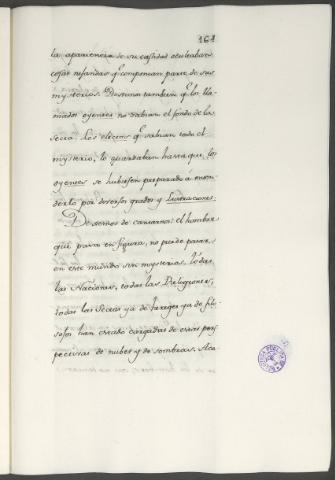 161
la apariencia de su castidad ocultaban
cosas nefandas q.e componian parte de sus
mysterios. Destino tambien q.e los lla-
mados oyentes no sabian el fondo de la
secta. Los electos q.e sabian todo el
mysterio, lo guardaban hasta que los
oyentes se hubiesen preparado á enten-
derlo por diversos grados y Lustraciones.
Dexemos de cansarnos: el hombre
que pasa en figura, no puede pasar
en este mundo sin mysterios. Todas
las Naciones, todas las Religiones,
todas las Sectas ya de hereges ya de filo-
sofos han creido cargadas de estas pers-
pectivas de nubes y de sombras. Aca-